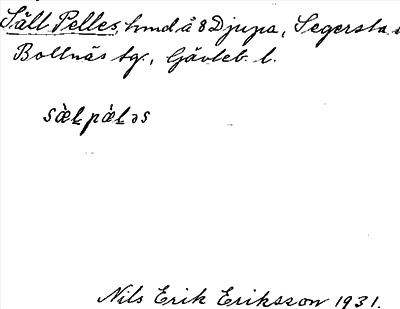 Säll Pelles, hmd å 8 Djupa, Segersta s
Bollnäs tg., Gävleb. l.
sæ̀l pæ̀l əs
Nils Erik Eriksson 1931.